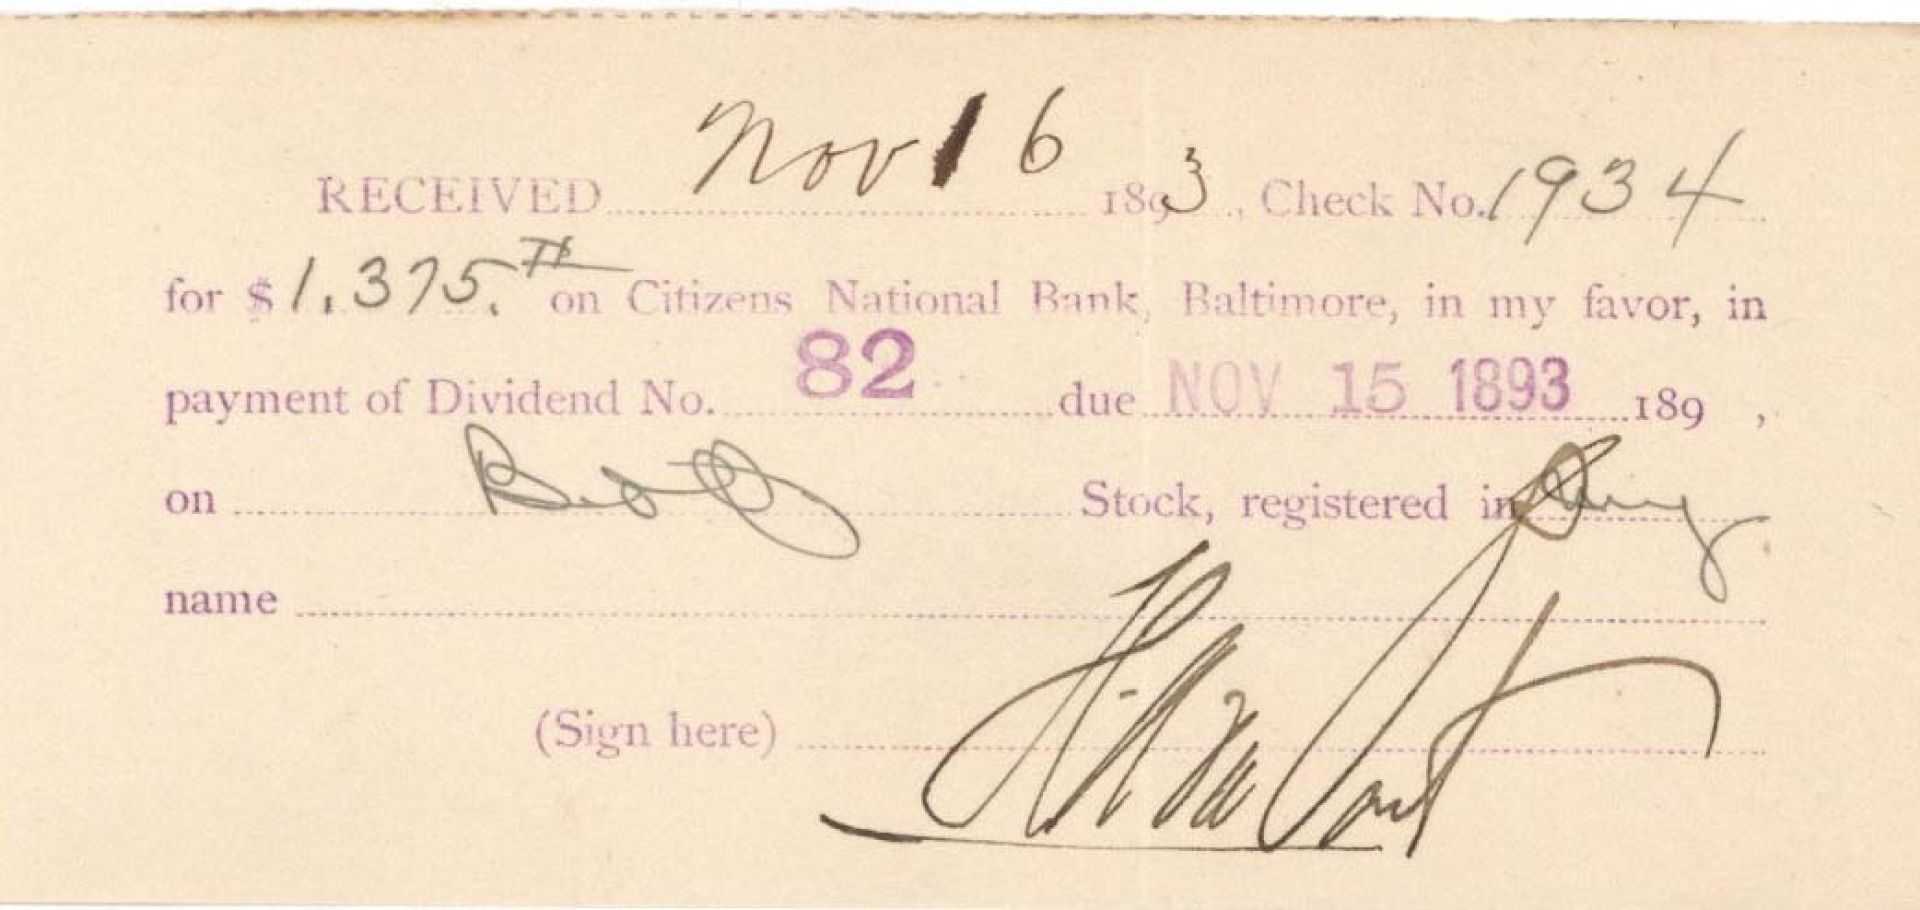 RECEIVED Nov 16 1893, Check No. 1934
for $ 1,375. on Citizens National Bank, Baltimore, in my favor, in
payment of Dividend No. 82 due NOV 15 1893 189 ,
on Stock, registered in my
name
(Sign here)